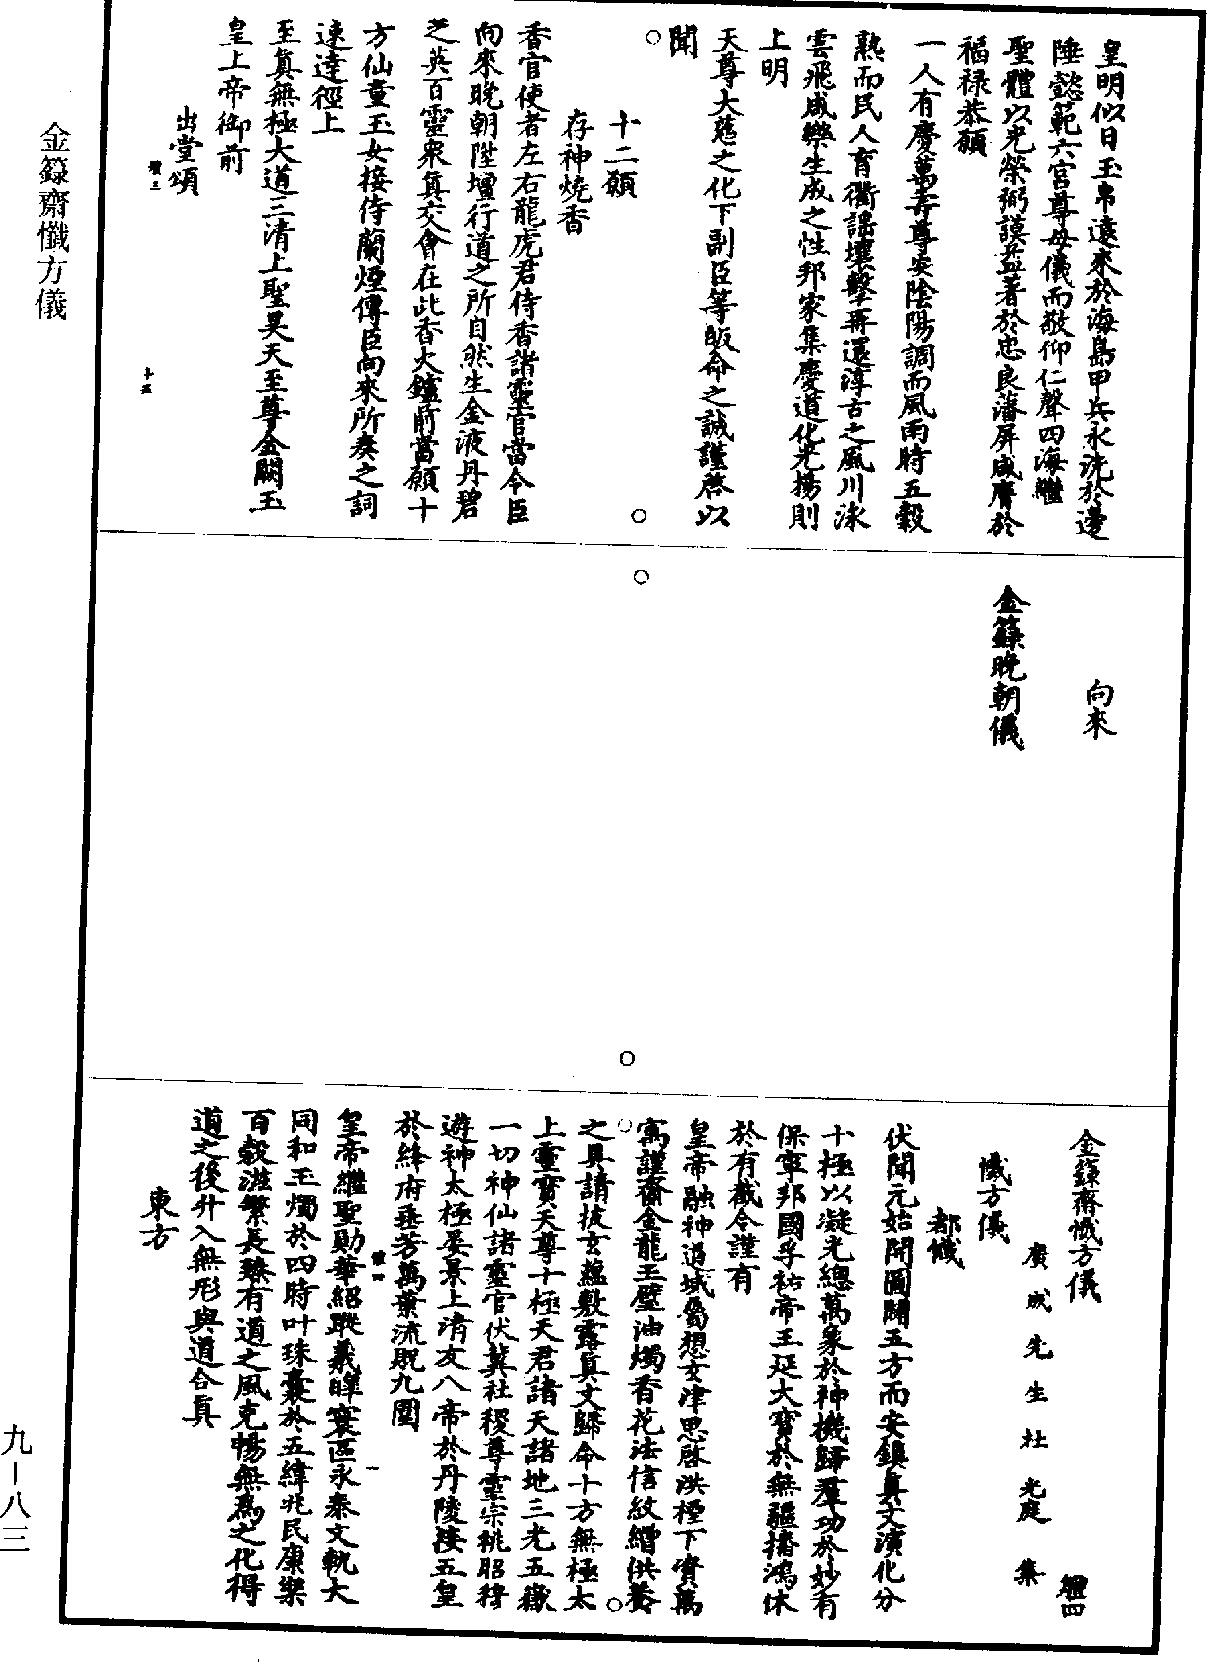 皇明似日玉帛遠來於海島甲兵永洗於邊
陲懿範六宮尊母儀而敬仰仁聲四海繼
聖體以光榮弼謨益著於忠良藩屏咸膺於
福祿恭願
一人有慶萬壽尊安陰陽調而風雨時五穀
熟而民人育衢謠壤擊再還淳古之風川泳
雲飛咸樂生成之性邦家集慶道化光揚則
上明
天尊大慈之化下副臣等皈命之誠謹啓以
聞
十二願
存神燒香
香官使者左右龍虎君侍香諸靈官當令臣
向來晚朝陞壇行道之所自然生金液丹碧
芝英百靈衆眞交會在此香火鑪前當願十
方仙童玉女接侍蘭煙傳臣向來所奏之詞
速達徑上
至眞無極大道三清上聖昊天至尊金闕玉
皇上帝御前
出堂頌
十五
向來
金籙晚朝儀
金籙齋懺方儀
體四
廣成先生杜光庭集
懺方儀
都懺
伏聞元始開圖闢五方而安鎮眞文演化分
十極以凝光總萬象於神機歸羣功於妙有
保寧邦國孚祐帝王延大寶於無疆播鴻休
於有截今謹有
皇帝融神道域屬想玄津思啓洪極下賓萬
寓謹齎金龍玉璧油燭香花法信紋繒供養
之具請披玄蘊敷露眞文歸命十方無極太
上靈寶天尊十極天君諸天諸地三光五嶽
一切神仙諸靈官伏冀社稷尊靈宗祧昭穆
遊神太極晏景上清友八帝於丹陵接五皇
於絳府垂芳萬葉流貺九圍
皇帝繼聖勛華紹蹤羲暤寰區永泰文軌大
同和玉燭於四時叶珠囊於五緯兆民康樂
百穀滋繁長臻有道之風克暢無爲之化得
道之後升入無形與道合眞
東方
金籙齋懺方儀
九-八三